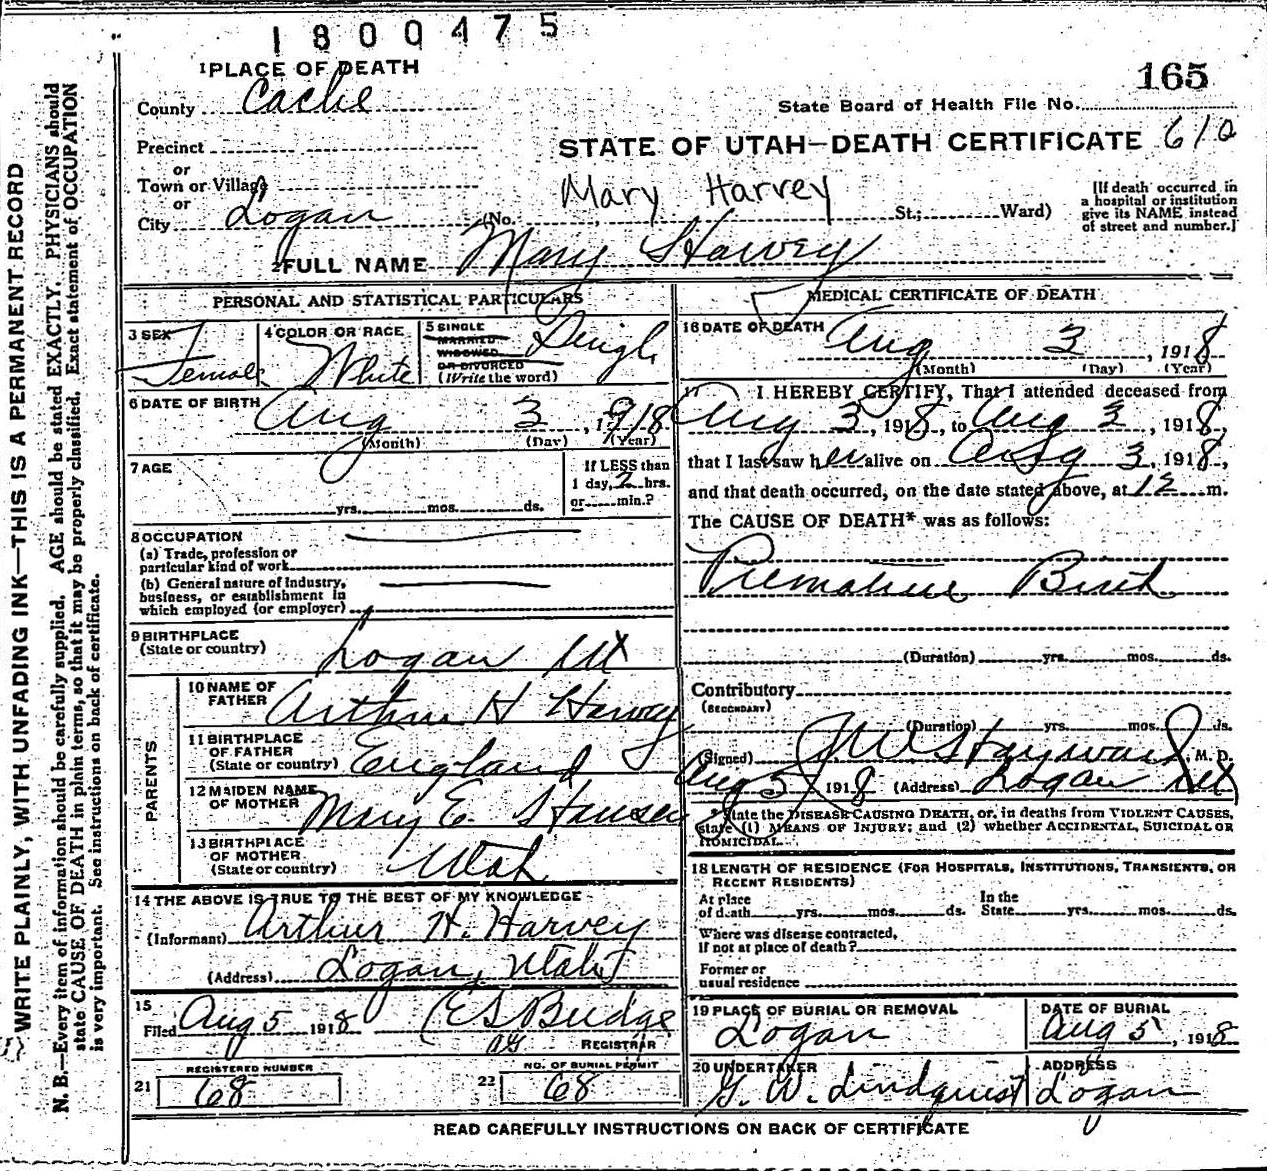 1800475
1 PLACE OF DEATH
165
County Cache
State Board of Health File No.
Precinct
STATE OF UTAH—DEATH CERTIFICATE 610
or
Town or Village
Mary Harvey
[If death occurred in
a hospital or institution
give its NAME instead
of street and number.]
or
City Logan (No. St.; Ward)
2 FULL NAME Mary Harvey
PERSONAL AND STATISTICAL PARTICULARS
3 SEX
Female
4 COLOR OR RACE
White
5 SINGLE
MARRIED
WIDOWED
OR DIVORCED
(Write the word)
Singl
6 DATE OF BIRTH
Aug 3, 1918
(Month) (Day) (Year)
7 AGE
yrs. mos. ds.
If LESS than
1 day, 2 hrs.
or min.?
8 OCCUPATION
(a) Trade, profession or
particular kind of work
(b) General nature of Industry,
business, or establishment in
which employed (or employer)
9 BIRTHPLACE
(State or country)
Logan Ut
PARENTS
10 NAME OF
FATHER
Arthur H Harvey
11 BIRTHPLACE
OF FATHER
(State or country)
England
12 MAIDEN NAME
OF MOTHER
Mary E. Hansen
13 BIRTHPLACE
OF MOTHER
(State or country)
Utah
14 THE ABOVE IS TRUE TO THE BEST OF MY KNOWLEDGE
(Informant) Arthur H. Harvey
(Address) Logan, Utah
15
Filed Aug 5 1918 E S Budge
REGISTRAR
REGISTERED NUMBER
21 68
NO. OF BURIAL PERMIT
22 68
MEDICAL CERTIFICATE OF DEATH
16 DATE OF DEATH
Aug 3, 1918
(Month) (Day) (Year)
17 I HEREBY CERTIFY, That I attended deceased from
Aug 3, 1918, to Aug 3, 1918,
that I last saw her alive on Aug 3, 1918,
and that death occurred, on the date stated above, at 12 m.
The CAUSE OF DEATH* was as follows:
Premature Birth
(Duration) yrs. mos. ds.
Contributory
(SECONDARY)
(Duration) yrs. mos. ds.
(Signed) J.W. Hayward, M. D.
Aug 5, 1918 (Address) Logan Ut
* State the DISEASE CAUSING DEATH, or, in deaths from VIOLENT CAUSES,
state (1) MEANS OF INJURY; and (2) whether ACCIDENTAL, SUICIDAL OR
HOMICIDAL.
18 LENGTH OF RESIDENCE (FOR HOSPITALS, INSTITUTIONS, TRANSIENTS, OR
RECENT RESIDENTS)
At place
of death yrs. mos. ds.
In the
State yrs. mos. ds.
Where was disease contracted,
if not at place of death?
Former or
usual residence
19 PLACE OF BURIAL OR REMOVAL
Logan
DATE OF BURIAL
Aug 5, 1918
20 UNDERTAKER
G. W. Lindquist
ADDRESS
Logan
READ CAREFULLY INSTRUCTIONS ON BACK OF CERTIFICATE
WRITE PLAINLY, WITH UNFADING INK—THIS IS A PERMANENT RECORD
N. B.—Every item of information should be carefully supplied. AGE should be stated EXACTLY. PHYSICIANS should
state CAUSE OF DEATH in plain terms, so that it may be properly classified. Exact statement of OCCUPATION
is very important. See instructions on back of certificate.